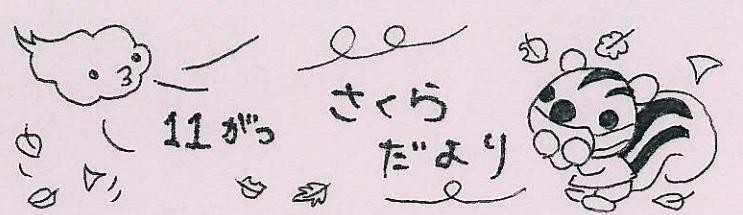 11がつ
さくら
だより